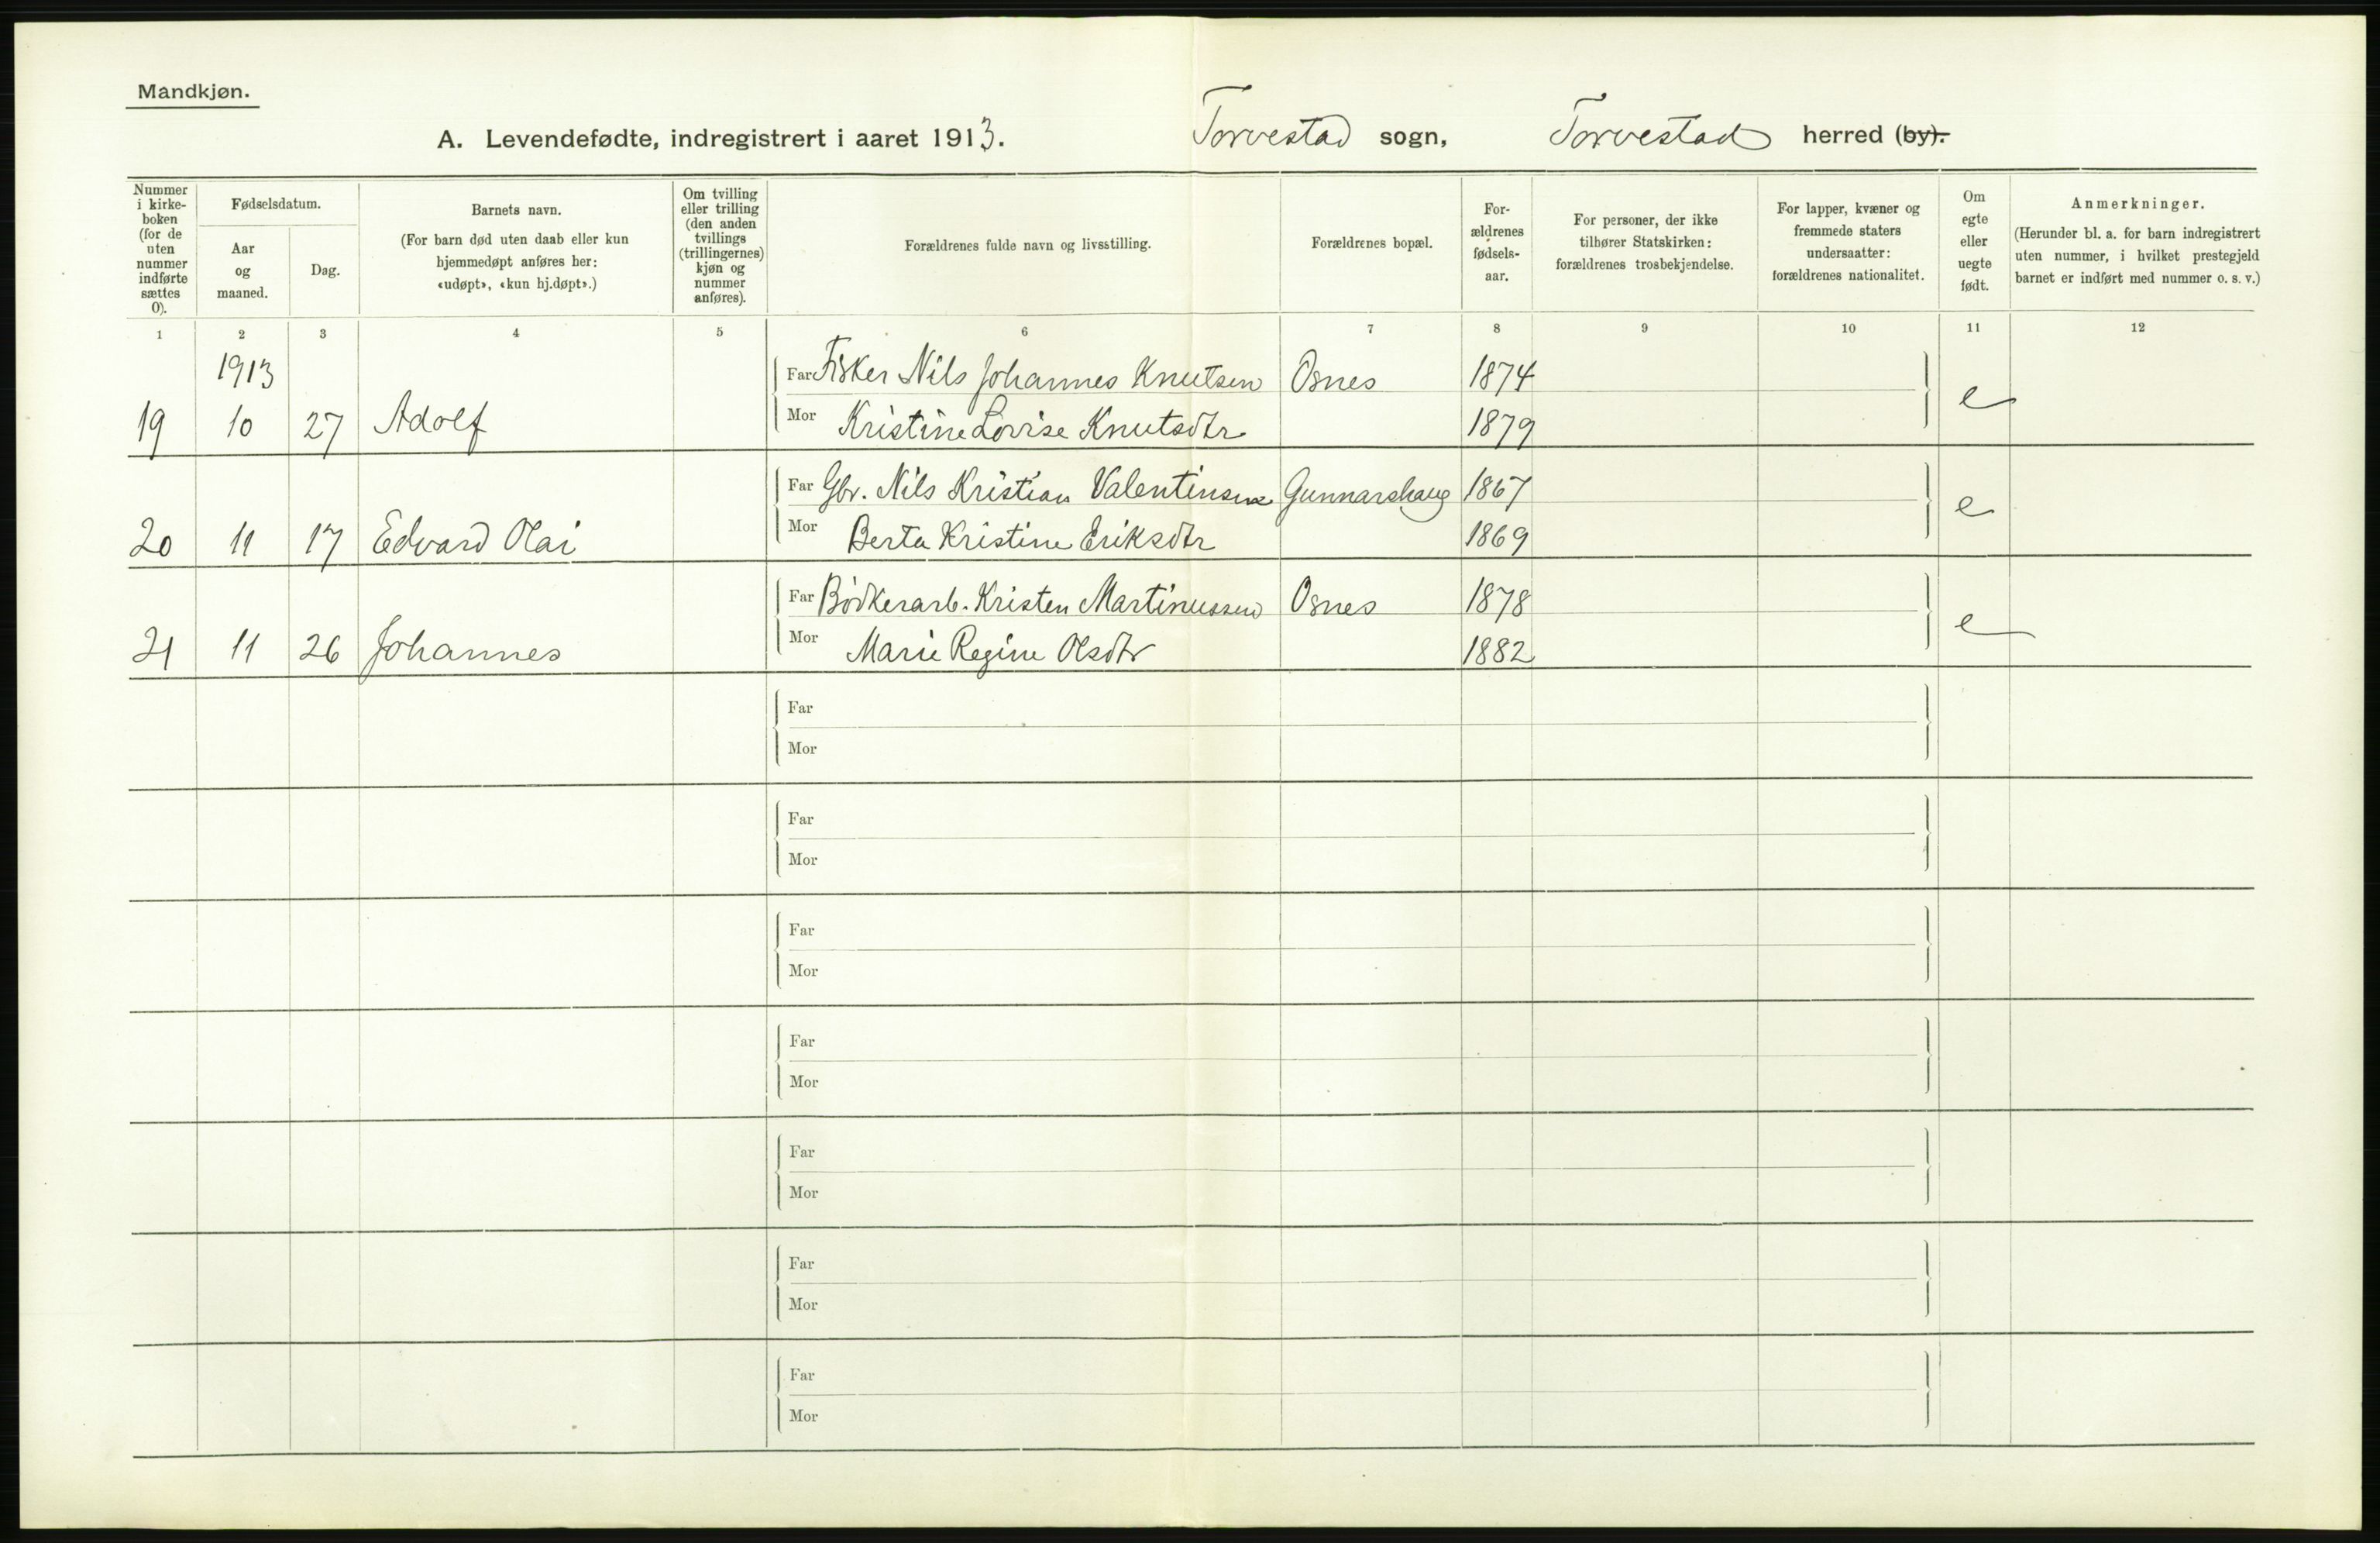 Mandkjøn.
A. Levendefødte, indregistrert i aaret 1913. Torvestad sogn, Torvestad herred (by).
Nummer i kirke-boken (for de uten nummer indførte sættes 0).
Fødselsdatum.
Aar og maaned.
Dag.
Barnets navn.
(For barn død uten daab eller kun hjemmedøpt anføres her: «udøpt», «kun hj.døpt».)
Om tvilling eller trilling (den anden tvillings (trillingernes) kjøn og nummer anføres).
Forældrenes fulde navn og livsstilling.
Forældrenes bopæl.
For-ældrenes fødsels-aar.
For personer, der ikke tilhører Statskirken: forældrenes trosbekjendelse.
For lapper, kvæner og fremmede staters undersaatter: forældrenes nationalitet.
Om egte eller uegte født.
Anmerkninger.
(Herunder bl. a. for barn indregistrert uten nummer, i hvilket prestegjeld barnet er indført med nummer o. s. v.)
1 2 3 4 5 6 7 8 9 10 11 12
1913
Far Fisker Nils Johannes Knutsen Osnes 1874
19 10 27 Adolf Mor Kristine Lovise Knutsdtr 1879 e
Far Gbr. Nils Kristian Valentinsen Gunnarshaug 1867
20 11 17 Edvard Olai Mor Berta Kristine Eriksdtr 1869 e
Far Bödkerarb. Kristen Martinussen Osnes 1878
21 11 26 Johannes Mor Marie Regine Olsdtr 1882 e
Far
Mor
Far
Mor
Far
Mor
Far
Mor
Far
Mor
Far
Mor
Far
Mor